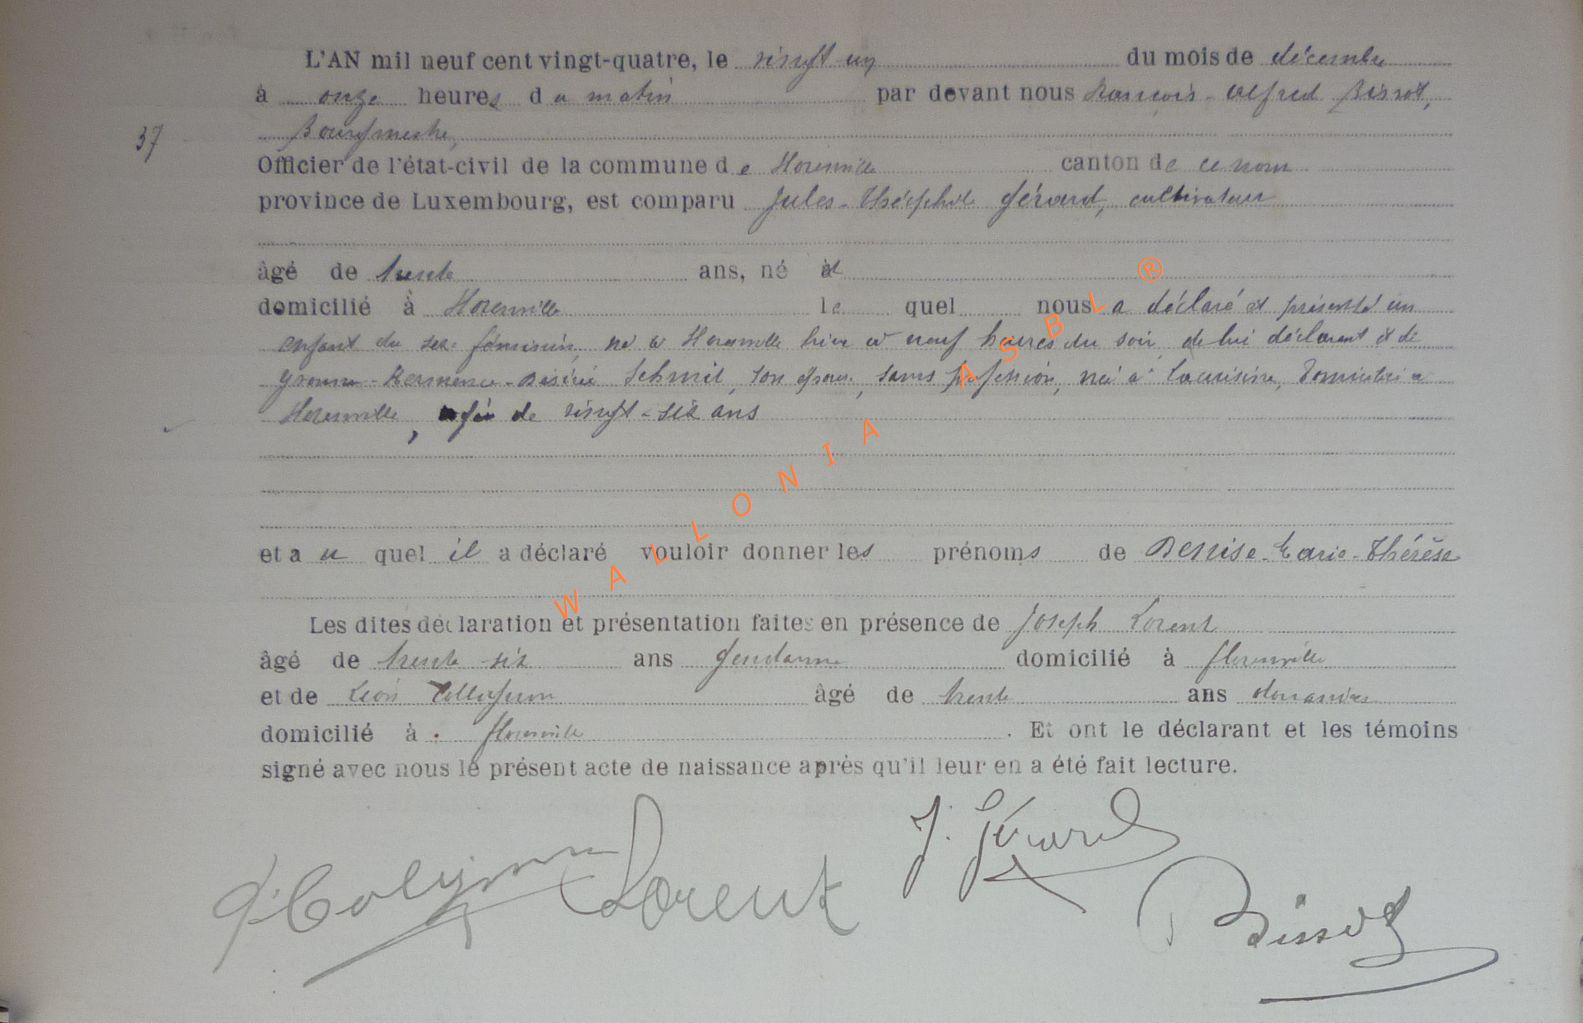 L'AN mil neuf cent vingt-quatre, le vingt-un du mois de décembre
à onze heures du matin par devant nous François-Alfred Bissot,
37
Bourgmestre,
Officier de l'état-civil de la commune de Florenville canton de ce nom
province de Luxembourg, est comparu Jules-Théophile Gérard, cultivateur
âgé de trente ans, né à
domicilié à Florenville lequel nous a déclaré et présenté un
enfant du sexe féminin, né à Florenville hier à neuf heures du soir, de lui déclarant et de
Yvonne-Hermence-Désirée Schmit, son épouse, sans profession, née à Lacuisine, domiciliée à
Florenville, âgée de vingt-six ans
et auquel il a déclaré vouloir donner les prénoms de Denise-Marie-Thérèse
Les dites déclaration et présentation faites en présence de Joseph Lorent
âgé de trente six ans gendarme domicilié à Florenville
et de Léon âgé de trente ans douanier
domicilié à Florenville. Et ont le déclarant et les témoins
signé avec nous le présent acte de naissance après qu'il leur en a été fait lecture.
J. Gérard
Lorent
Bissot
WALLONIA ASBL ®